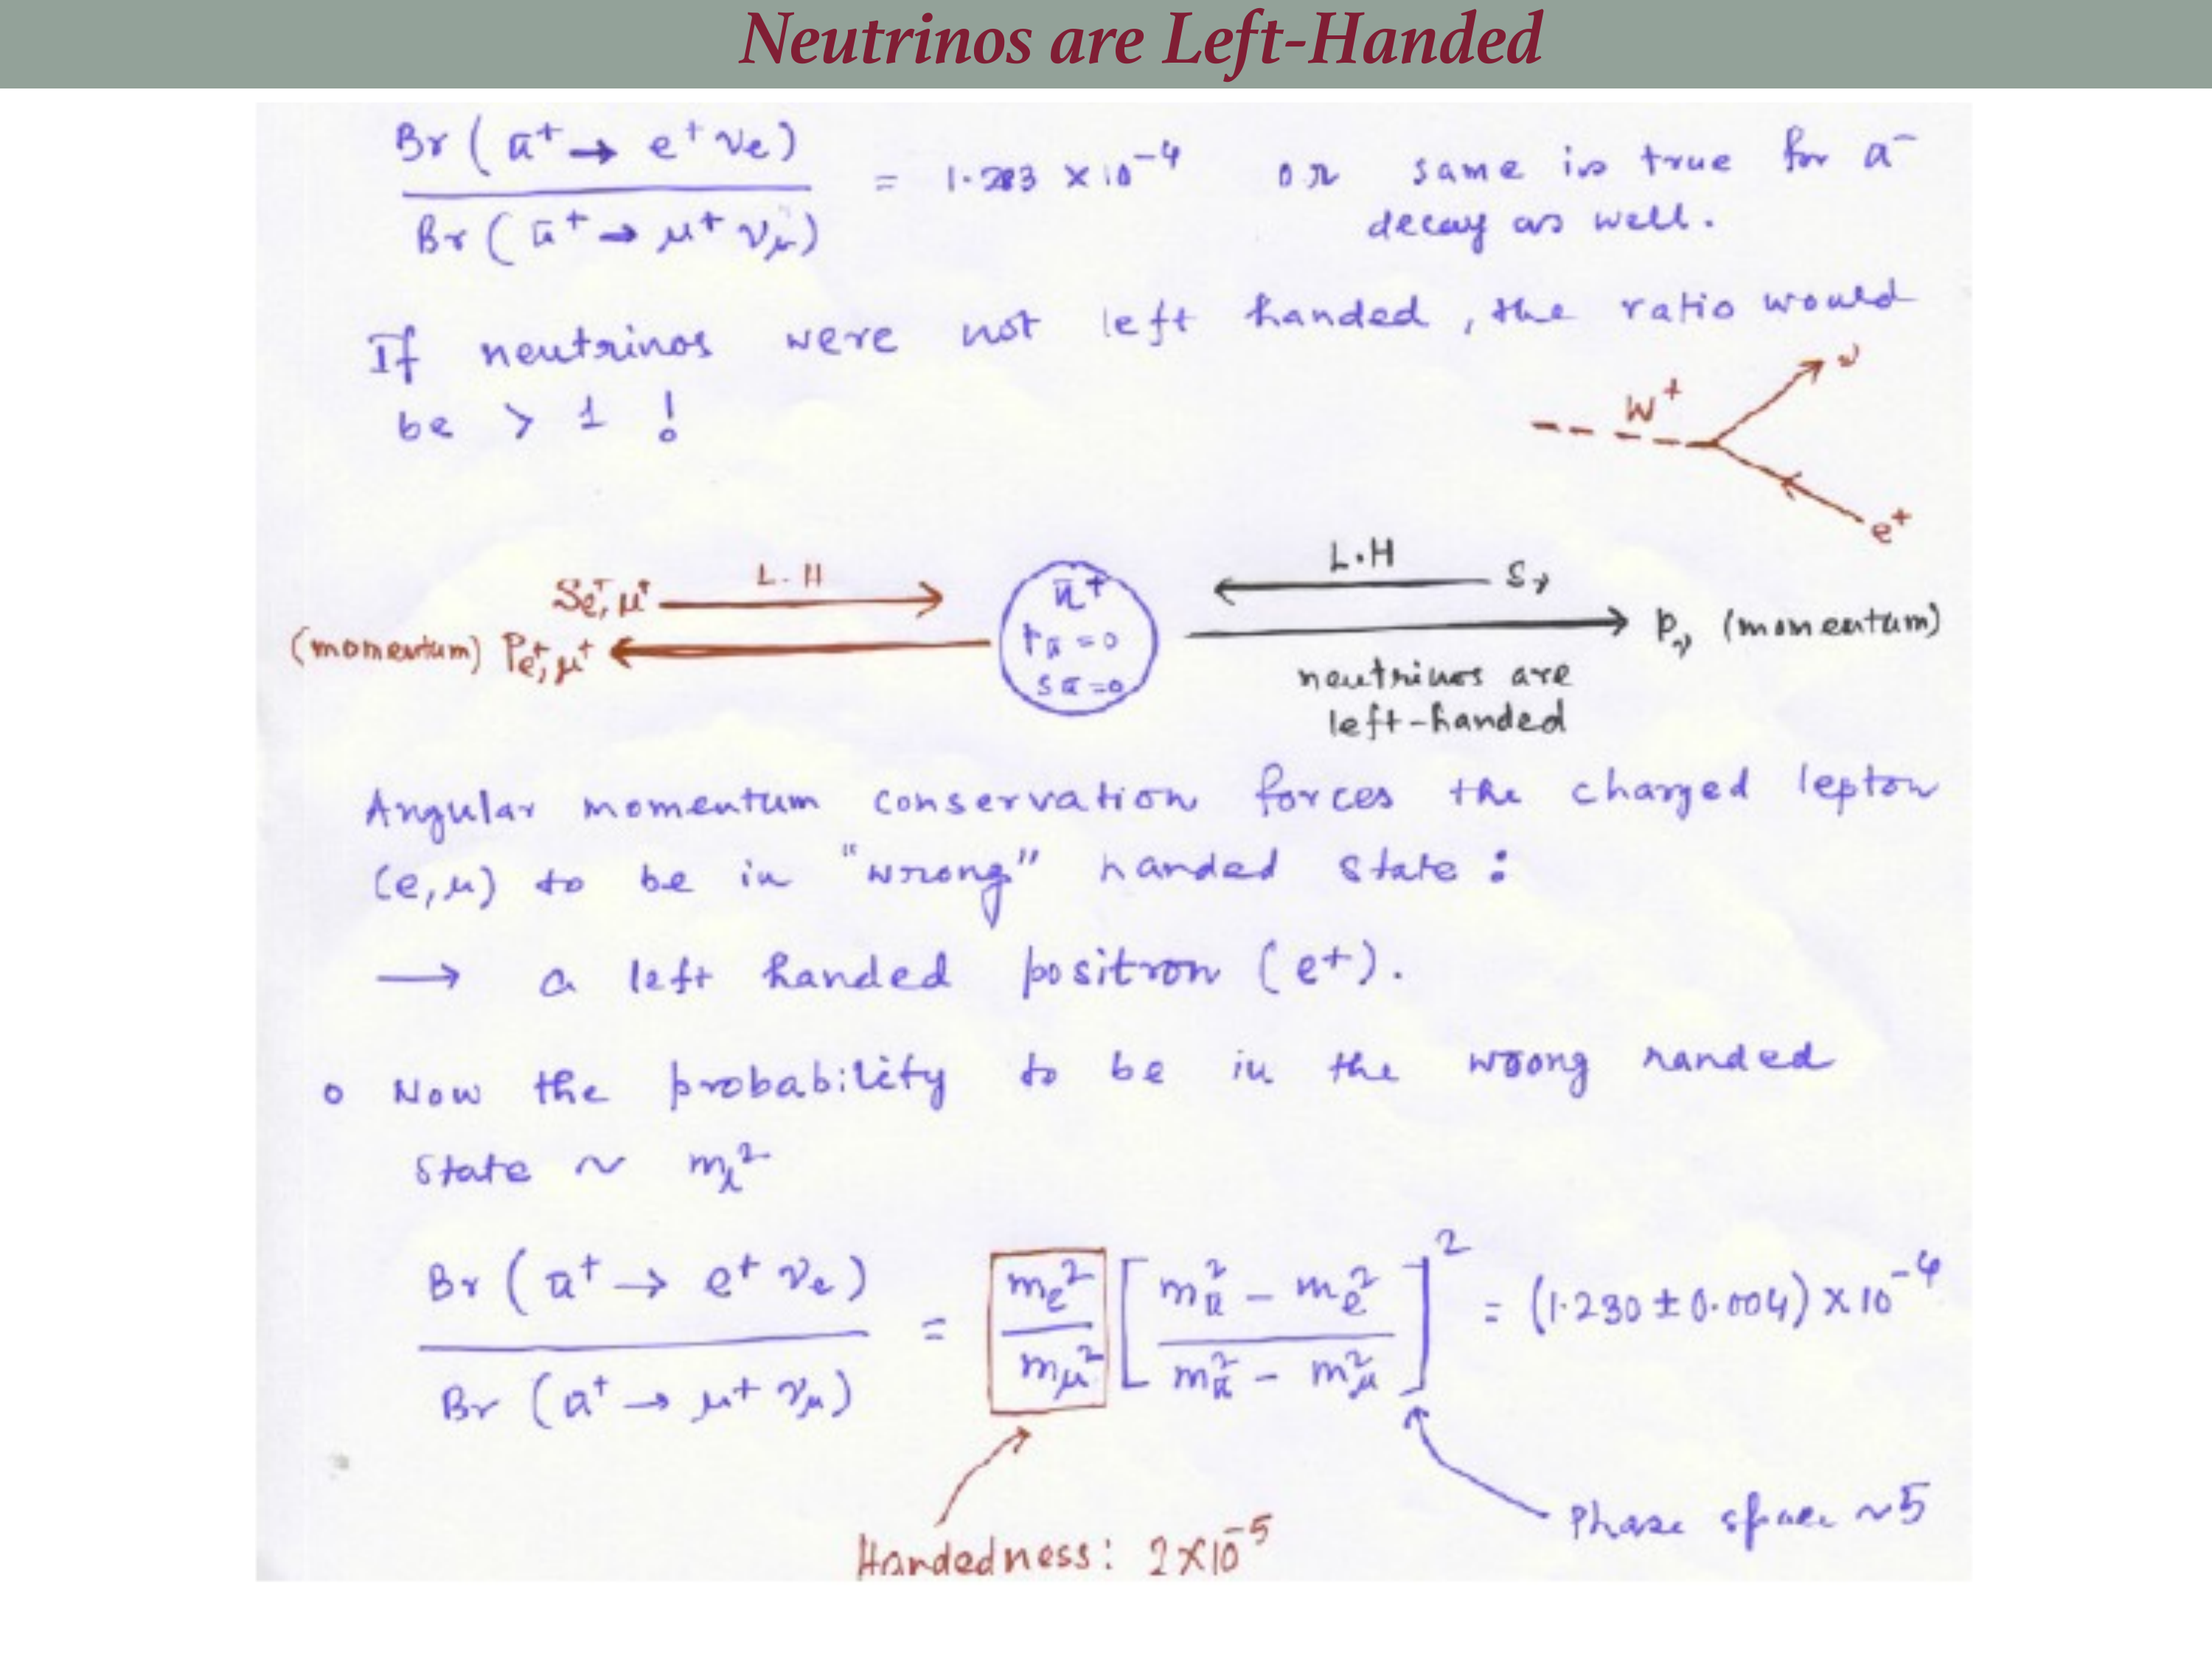 Neutrinos are Left-Handed
Br (π⁺ → e⁺ νe) / Br (π⁺ → μ⁺ νμ) = 1.283 × 10⁻⁴ or same is true for π⁻
decay as well.
If neutrinos were not left handed, the ratio would
be > 1 !
W⁺ ν
e⁺
Se⁺, μ⁺ L.H
(momentum) Pe⁺, μ⁺
π⁺
pπ = 0
sπ = 0
L.H Sν
pν (momentum)
neutrinos are
left-handed
Angular momentum conservation forces the charged lepton
(e, μ) to be in "wrong" handed state :
→ a left handed positron (e+).
o Now the probability to be in the wrong handed
state ~ mℓ²
Br (π⁺ → e⁺ νe) / Br (π⁺ → μ⁺ νμ) = me² / mμ² [ mπ² − me² / mπ² − mμ² ]² = (1.230 ± 0.004) × 10⁻⁴
Phase space ~5
Handedness: 2×10⁻⁵